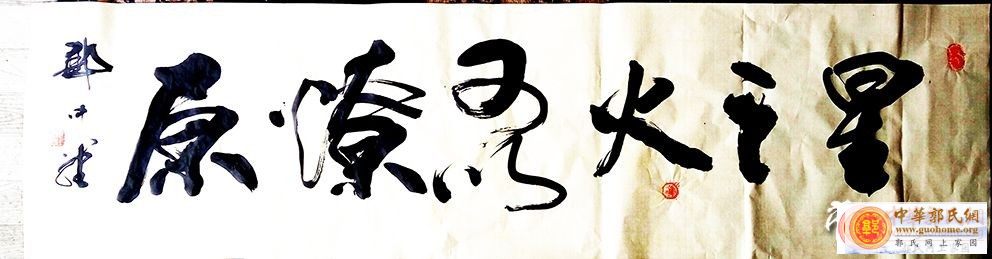 星之火可以燎原
郭
中華郭氏網
www.guohome.org
郭氏网上家园